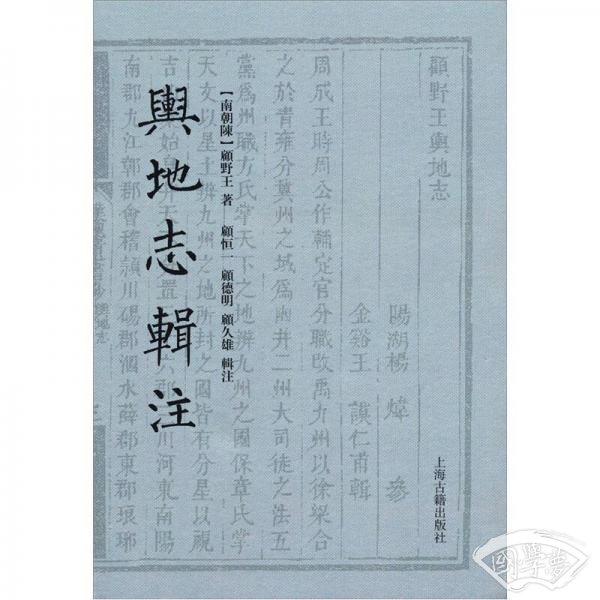 輿地志輯注
【南朝陳】顧野王 著
顧恒一 顧德明 顧久雄 輯注
上海古籍出版社
顧野王輿地志
陽湖楊 煒 參
金谿王 謨仁甫輯
周成王時周公作輔定官分職改禹九州以徐梁合
之於青雍分冀州之域為幽并二州大司徒之法五
黨為州職方氏掌天下之地辨九州之國保章氏掌
天文以星土辨九州之地所封之國皆有分星以視
川河東南陽
南郡九江鄣郡會稽潁川碭郡泗水薛郡東郡琅琊
國學夢